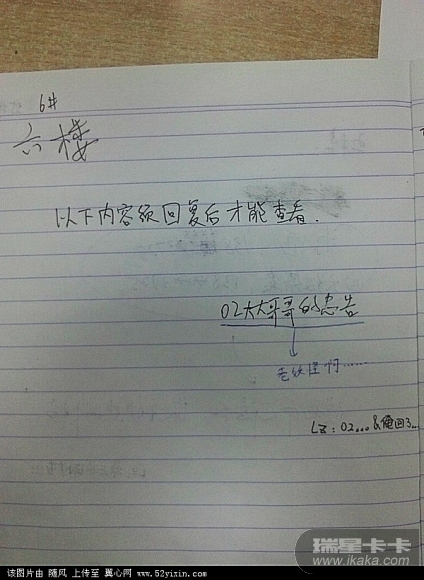 6#
六楼
以下内容须回复后才能查看.
02大大哥哥的忠告
老妖怪啊……
LZ：02...&俺回了...
瑞星卡卡
www.ikaka.com
该图片由 随风 上传至 翼心网 www.52yixin.com